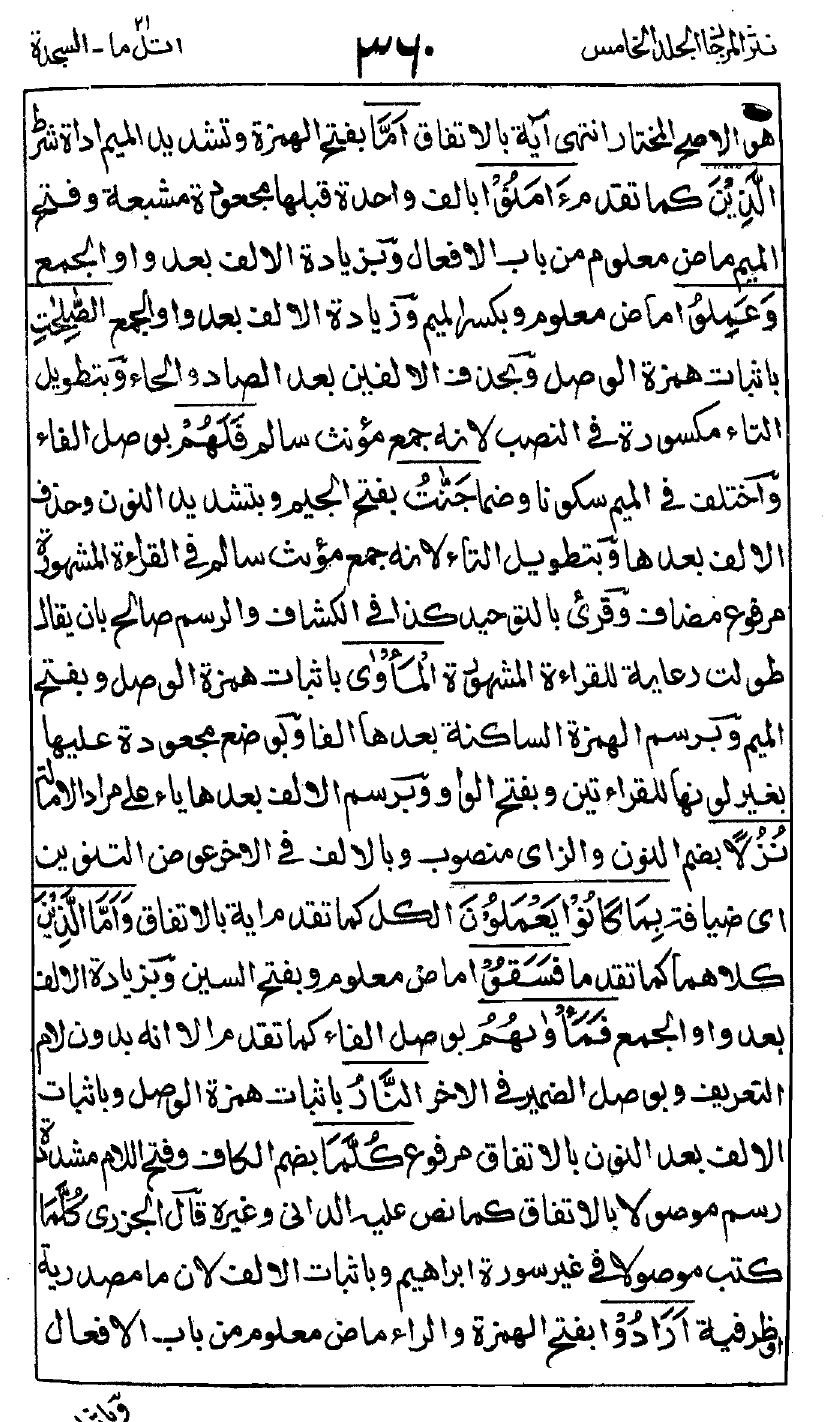 نثر المرجان الجلد الخامس ٣٦٠ اتل ما - السجدة ٢١
هو الاصح المختار انتهى آية بالاتفاق اَمَّا بفتح الهمزة وتشديد الميم اداة شرط
الَّذِيْنَ كما تقدم ءَامَنُوْا بالف واحدة قبلها مجعودة مشبعة وفتح
الميم ماض معلوم من باب الافعال وَبزيادة الالف بعد واو الجمع
وَعَمِلُوا ماض معلوم وبكسر الميم وَزيادة الالف بعد واو الجمع الصّٰلِحٰتِ
باثبات همزة الوصل وَبحذف الالفين بعد الصاد والحاء وَبتطويل
التاء مكسورة في النصب لانه جمع مؤنث سالم فَلَهُمْ بوصل الفاء
وَاختلف في الميم سكونا وضما جَنّٰتُ بفتح الجيم وبتشديد النون وحذف
الالف بعدها وَبتطويل التاء لانه جمع مؤنث سالم في القراءة المشهورة
مرفوع مضاف وَقرئ بالتوحيد كذا في الكشاف والرسم صالح بان يقال
طولت رعاية للقراءة المشهورة الْمَأْوٰى باثبات همزة الوصل وبفتح
الميم وَبرسم الهمزة الساكنة بعدها الفا وَبوضع مجعودة عليها
بغير لونها للقراءتين وبفتح الواو وَبرسم الالف بعدها ياء على مراد الامالة
نُزُلًا بضم النون والزاى منصوب وبالالف في الاخر عوض التنوين
اى ضيافة بِمَا كَانُوْا يَعْمَلُوْنَ الكل كما تقدم اية بالاتفاق وَاَمَّا الَّذِيْنَ
كلاهما كما تقدما فَسَقُوْا ماض معلوم وبفتح السين وَبزيادة الالف
بعد واو الجمع فَمَأْوٰىهُمُ بوصل الفاء كما تقدم الا انه بدون لام
التعريف وبوصل الضمير في الاخر النَّارُ باثبات همزة الوصل وباثبات
الالف بعد النون بالاتفاق مرفوع كُلَّمَا بضم الكاف وفتح اللام مشددة
رسم موصولا بالاتفاق كما نص عليه الدانى وغيره قَال الجزرى كُلَّمَا
كتب موصولا في غير سورة ابراهيم وباثبات الالف لان ما مصدرية
او ظرفية اَرَادُوْا بفتح الهمزة والراء ماض معلوم من باب الافعال